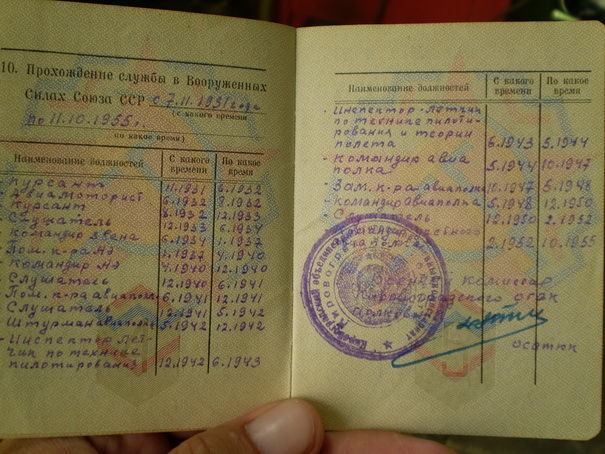 10. Прохождение службы в Вооруженных
Силах Союза ССР с 7.11.1931 года
(с какого времени
по 11.10.1955 г.
по какое время)
Наименование должностей С какого времени По какое время
Курсант 11.1931 6.1932
Авиамоторист 6.1932 8.1932
Курсант 6.1932 12.1933
Слушатель 12.1933 6.1934
Командир звена 6.1934 1.1937
Пом. к-ра АЭ 1.1937 4.1940
Командир АЭ 4.1940 12.1940
Слушатель 12.1940 6.1941
Пом. к-ра авиаполка 6.1941 12.1941
Слушатель 12.1941 5.1942
Штурман авиаполка 5.1942 12.1942
- Инспектор лет-
чик по технике
пилотирования 12.1942 6.1943
Наименование должностей С какого времени По какое время
- Инспектор-летчик
по технике пилоти-
рования и теории
полета 6.1943 5.1944
- Командир авиа
полка 5.1944 10.1947
- Зам. к-ра авиаполка 10.1947 5.1948
- Командир авиаполка 5.1948 12.1950
- Слушатель 12.1950 2.1952
авиаполка 2.1952 10.1955
Военный комиссар
Кировоградского ОГВК
полковник
Осатюк